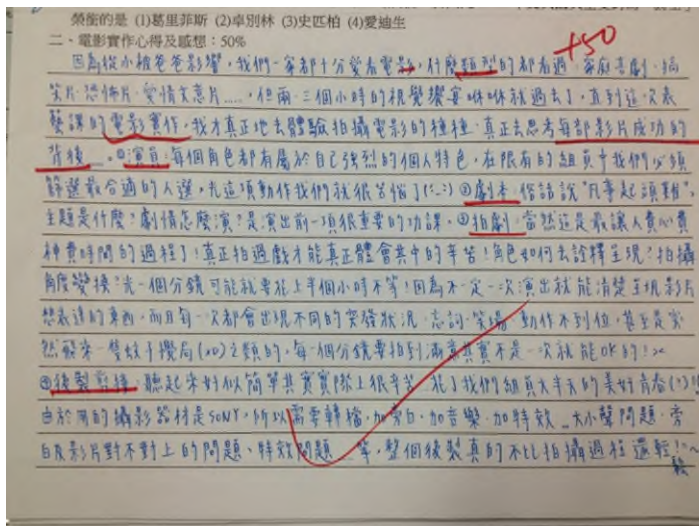 榮銜的是 (1)葛里菲斯 (2)卓別林 (3)史匹柏 (4)愛迪生
二、電影實作心得及感想：50%
+50
因為從小被爸爸影響，我們一家都十分愛看電影，什麼類型的都看過，家庭喜劇、搞
笑片、恐怖片、愛情文藝片……，但兩、三個小時的視覺饗宴咻咻就過去了，直到這次表
藝課的電影實作，我才真正地去體驗拍攝電影的種種，真正去思考每部影片成功的
背後…。①演員：每個角色都有屬於自己強烈的個人特色，在限有的組員中我們必須
篩選最合適的人選，光這項動作我們就很苦惱了(=.=) ②劇本：俗話說"凡事起頭難"，
主題是什麼？劇情怎麼演？是演出前一項很重要的功課。③拍劇：當然這是最讓人費心費
神費時間的過程了！真正拍過戲才能真正體會其中的辛苦！角色如何去詮釋呈現？拍攝
角度變換？光一個分鏡可能就要花上半個小時不等！因為不一定一次演出就能清楚呈現影片
想表達的東西，而且每一次都會出現不同的突發狀況，忘詞、笑場、動作不到位，甚至是突
然飛來一隻蚊子攪局(xD)之類的，每一個分鏡要拍到滿意其實不是一次就能OK的！><
④後製剪接：聽起來好似簡單其實實際上很辛苦，花了我們組員大半天的美好青春(?)
由於用的攝影器材是SONY，所以需要轉檔，加旁白、加音樂、加特效…大小聲問題，旁
白及影片對不對上的問題、特效問題…等，整個後製真的不比拍攝過程還輕鬆！~